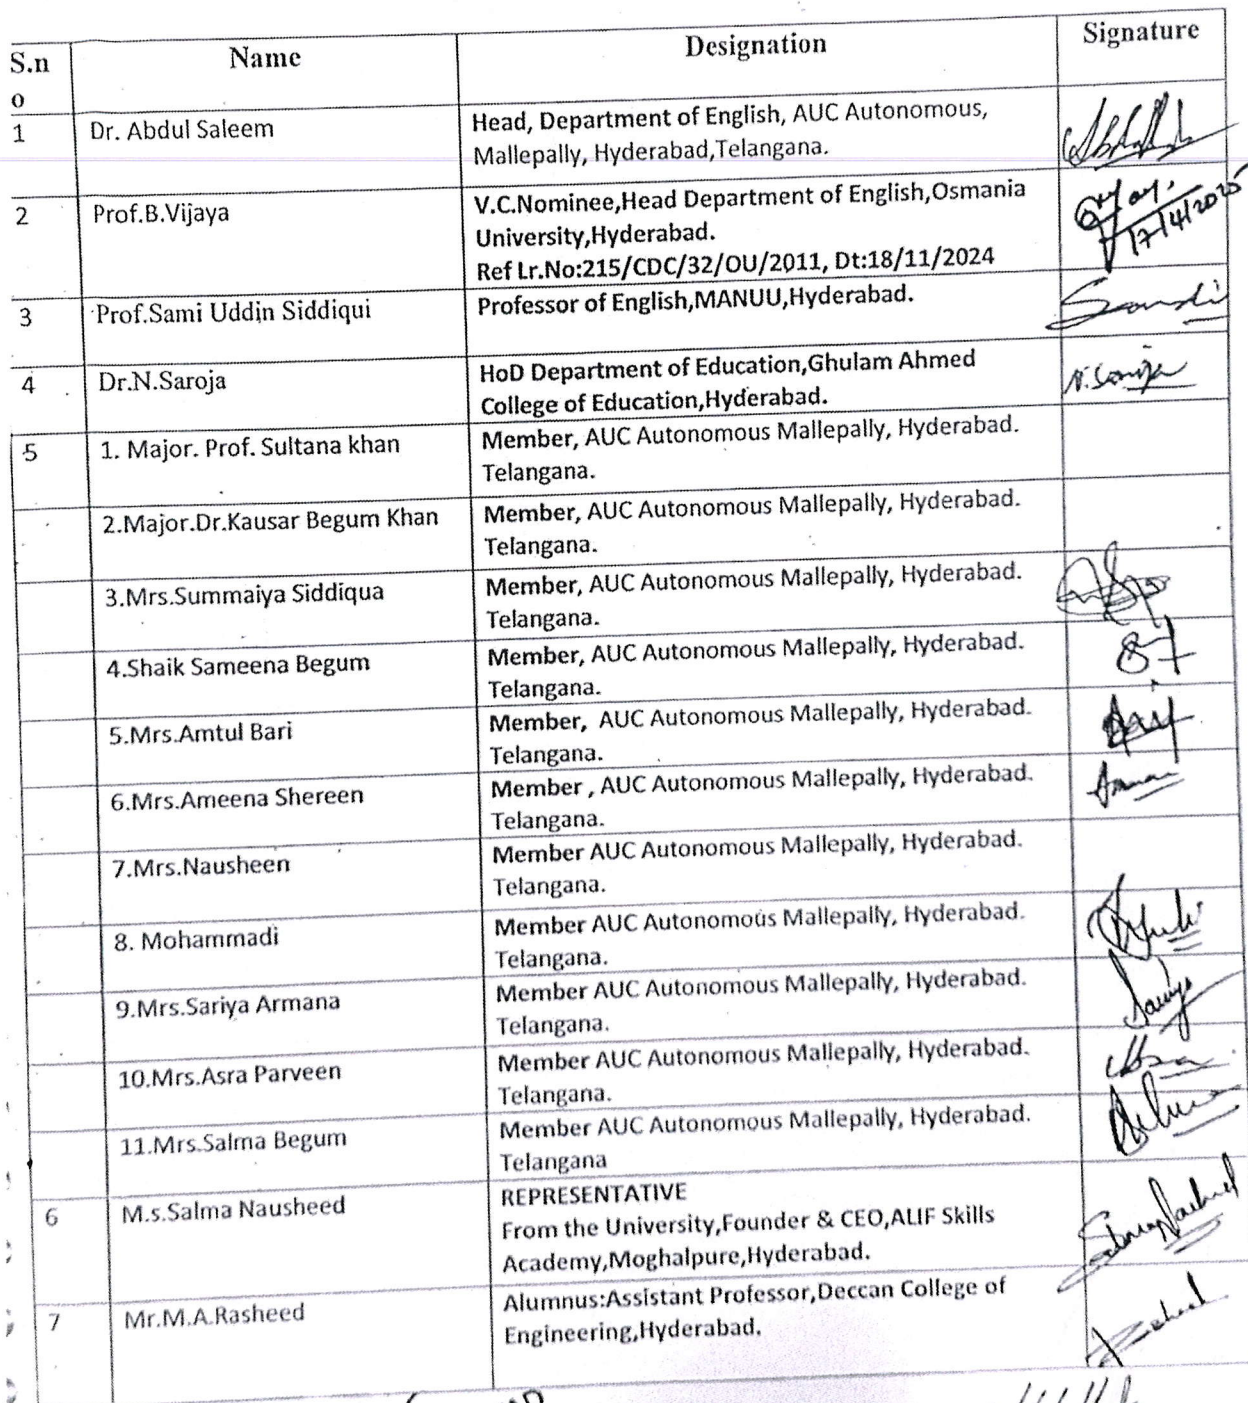 S.n
o
Name
Designation
Signature
1
Dr. Abdul Saleem
Head, Department of English, AUC Autonomous,
Mallepally, Hyderabad,Telangana.
2
Prof.B.Vijaya
V.C.Nominee,Head Department of English,Osmania
University,Hyderabad.
Ref Lr.No:215/CDC/32/OU/2011, Dt:18/11/2024
17/4/2025
3
Prof.Sami Uddin Siddiqui
Professor of English,MANUU,Hyderabad.
4
Dr.N.Saroja
HoD Department of Education,Ghulam Ahmed
College of Education,Hyderabad.
N.Saroja
5
1. Major. Prof. Sultana khan
Member, AUC Autonomous Mallepally, Hyderabad.
Telangana.
2.Major.Dr.Kausar Begum Khan
Member, AUC Autonomous Mallepally, Hyderabad.
Telangana.
3.Mrs.Summaiya Siddiqua
Member, AUC Autonomous Mallepally, Hyderabad.
Telangana.
4.Shaik Sameena Begum
Member, AUC Autonomous Mallepally, Hyderabad.
Telangana.
5.Mrs.Amtul Bari
Member, AUC Autonomous Mallepally, Hyderabad.
Telangana.
6.Mrs.Ameena Shereen
Member , AUC Autonomous Mallepally, Hyderabad.
Telangana.
7.Mrs.Nausheen
Member AUC Autonomous Mallepally, Hyderabad.
Telangana.
8. Mohammadi
Member AUC Autonomous Mallepally, Hyderabad.
Telangana.
9.Mrs.Sariya Armana
Member AUC Autonomous Mallepally, Hyderabad.
Telangana.
10.Mrs.Asra Parveen
Member AUC Autonomous Mallepally, Hyderabad.
Telangana.
11.Mrs.Salma Begum
Member AUC Autonomous Mallepally, Hyderabad.
Telangana
6
M.s.Salma Nausheed
REPRESENTATIVE
From the University,Founder & CEO,ALIF Skills
Academy,Moghalpure,Hyderabad.
7
Mr.M.A.Rasheed
Alumnus:Assistant Professor,Deccan College of
Engineering,Hyderabad.